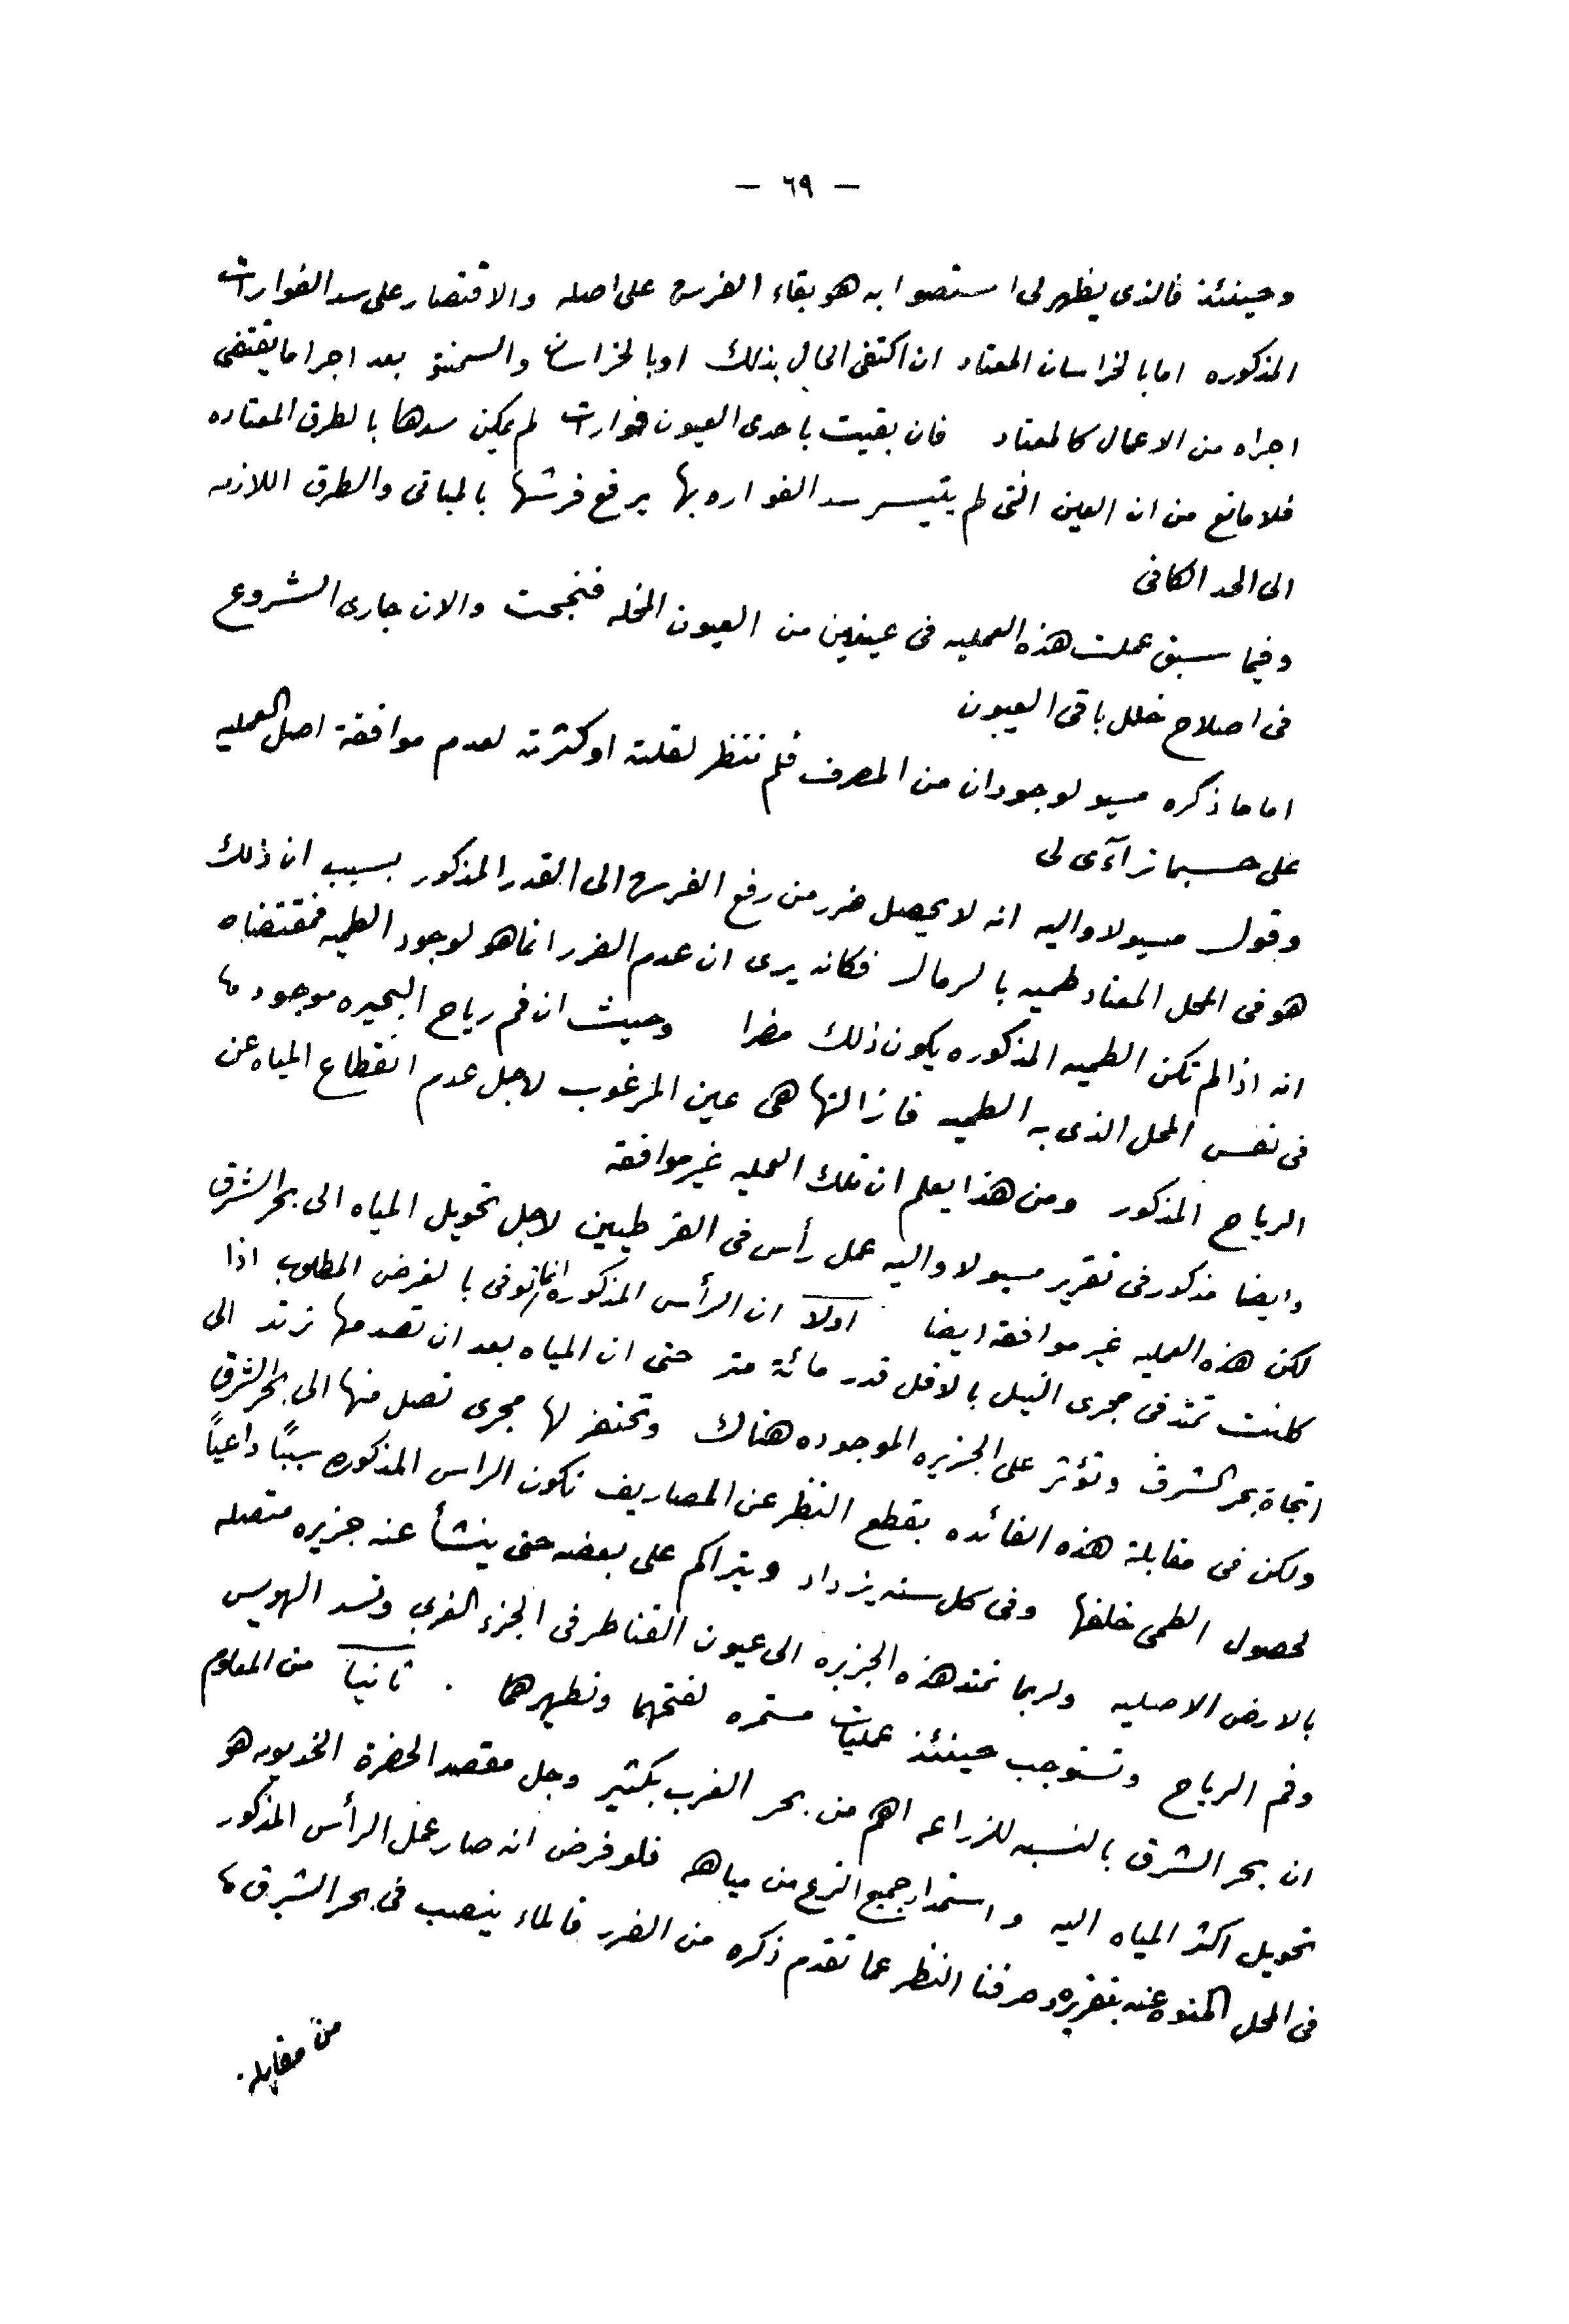 — ٦٩ —
وحينئذ فالذى يظهر لى استصوابه هو بقاء الفرش على اصله والاقتصار على سد الفوارات
المذكوره اما بالخراسان المعتاد ان اكتفى الحال بذلك او بالخراسان والسمنتو بعد اجرا ما يقتضى
اجراه من الاعمال كالمعتاد فان بقيت باحدى العيون فوارات لم يمكن سدها بالطرق المعتاده
فلا مانع من ان العين التى لم يتيسر سد الفواره بها يرفع فرشها بالمبانى والطرق اللازمه
الى الحد الكافى
وفيما سبق عملت هذه العمليه فى عينين من العيون المخله فنجحت والان جارى الشروع
فى اصلاح خلل باقى العيون
اما ما ذكره مسيو لوجودان من المصرف فلم ننظر لقلته او كثرته لعدم موافقة اصل العمليه
على حسبما تراآى لى
وقول مسيو لاواليه انه لا يحصل ضرر من رفع الفرش الى القدر المذكور بسبب ان ذلك
هو فى المحل المعتاد طميه بالرمال فكانه يرى ان عدم الضرر انما هو لوجود الطميه فمقتضاه
انه اذا لم تكن الطميه المذكوره يكون ذلك مضرا وحيث ان فم رياح البحيره موجود
فى نفس المحل الذى به الطميه فازالتها هى عين المرغوب لاجل عدم انقطاع المياه عن
الرياح المذكور ومن هذا يعلم ان تلك العمليه غير موافقة
وايضا مذكور فى تقرير مسيو لاواليه عمل رأس فى القرطيين لاجل تحويل المياه الى بحر الشرق
لكن هذه العمليه غير موافقه ايضا اولا ان الرأس المذكوره انما توفى بالغرض المطلوب اذا
كانت تمتد فى مجرى النيل بالاقل قدر مائة متر حتى ان المياه بعد ان تصدمها ترتد الى
اتجاه بحر الشرق وتؤثر على الجزيره الموجوده هناك وتحتفر لها مجرى تصل منها الى بحر الشرق
ولكن فى مقابلة هذه الفائده بقطع النظر عن المصاريف تكون الراس المذكوره سببًا داعيًا
لحصول الطمى خلفها وفى كل سنه يزداد ويتراكم على بعضه حتى ينشأ عنه جزيره متصله
بالارض الاصليه ولربما تمتد هذه الجزيره الى عيون القناطر فى الجزء الغربى وتسد الهويس
وفم الرياح وتستوجب حينئذ عمليات مستمره لفتحهما وتطهيرهما . ثانيا من المعلوم
ان بحر الشرق بالنسبه للزراعه اهم من بحر الغرب بكثير وجل مقصد الحضرة الخديويه هو
تحويل اكثر المياه اليه واستمرار جميع الترع من مياهه فلو فرض انه صار عمل الرأس المذكور
فى المحل المنوه عنه بتقريره وصرفنا النظر عما تقدم ذكره من الضرر فالماء ينصب فى بحر الشرق
من مقابله.